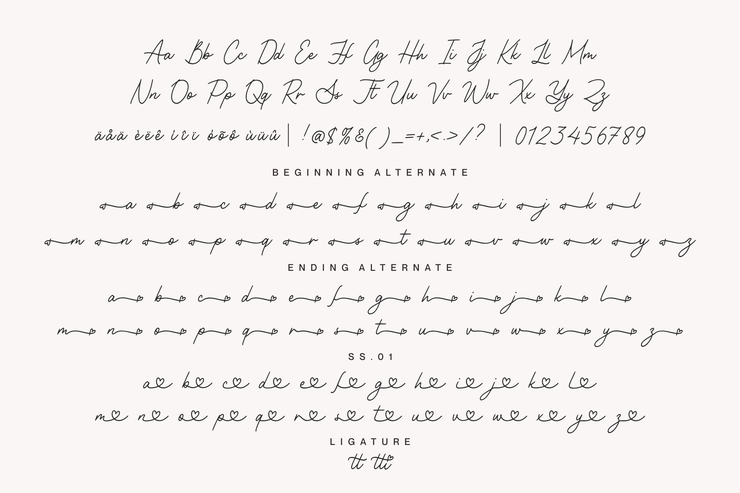 Aa Bb Cc Dd Ee Ff Gg Hh Ii Jj Kk Ll Mm
Nn Oo Pp Qq Rr Ss Tt Uu Vv Ww Xx Yy Zz
äåâ èëê ìîï òõô ùüû | !@$%&( )_=+,<.>/? | 0123456789
BEGINNING ALTERNATE
a b c d e f g h i j k l
m n o p q r s t u v w x y z
ENDING ALTERNATE
a b c d e f g h i j k l
m n o p q r s t u v w x y z
SS.01
a b c d e f g h i j k l
m n o p q r s t u v w x y z
LIGATURE
tt tti